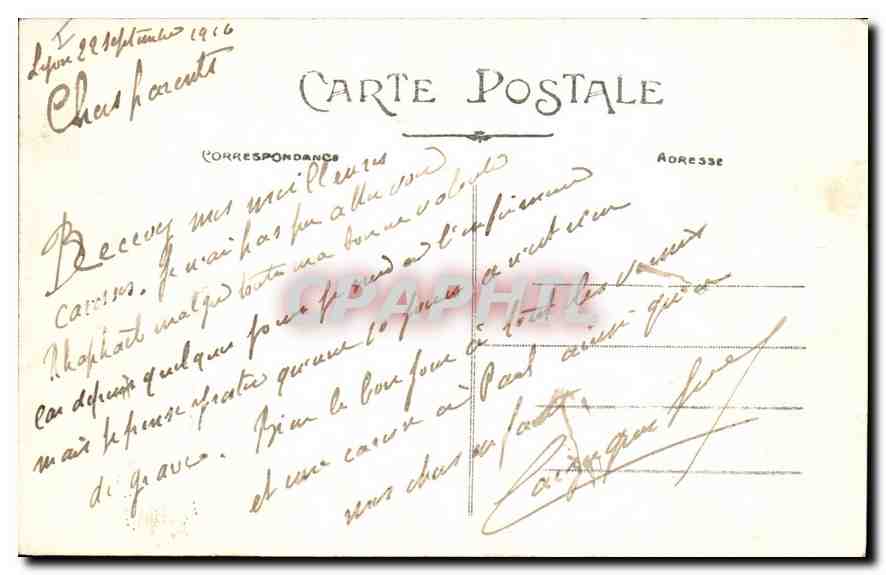 Lyon 22 Septembre 1916
Chers parents
CARTE POSTALE
CORRESPONDANCE
ADRESSE
Recevez mes meilleures
caresses. Je n'ai pas pu aller voir
Rhaphaël malgré toute ma bonne volonté
car depuis quelques jours je suis à l'infirmerie
mais je pense répartir ce n'est rien
de grave. Bien le bonjour à tous les voisins
et une caresse à Paul ainsi qu'à
mes chers enfants.
CPAPHIL